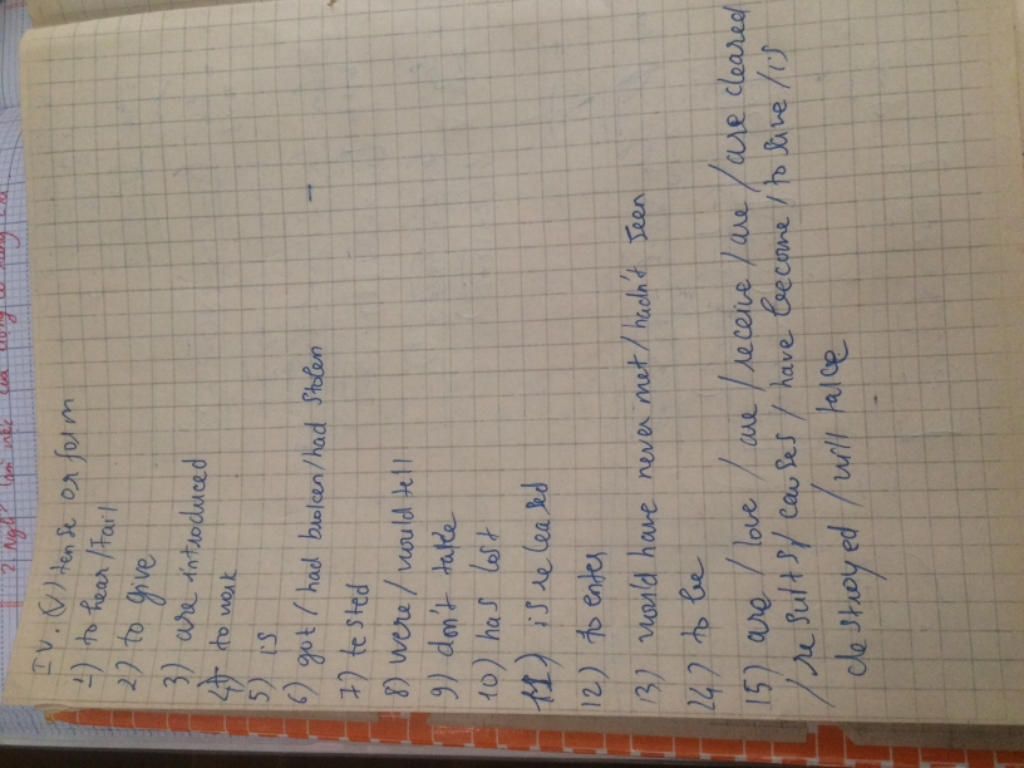 IV. (V) tense or form
1) to hear / Fail
2) to give
3) are introduced
4) to work
5) is
6) got / had broken / had stolen
7) tested
8) were / would tell
9) don't take
10) has lost
11) is released
12) to enter
13) would have never met / hadn't seen
14) to be
15) are / love / are / receive / are / are cleared
/ results / causes / have become / to save / is
destroyed / will take